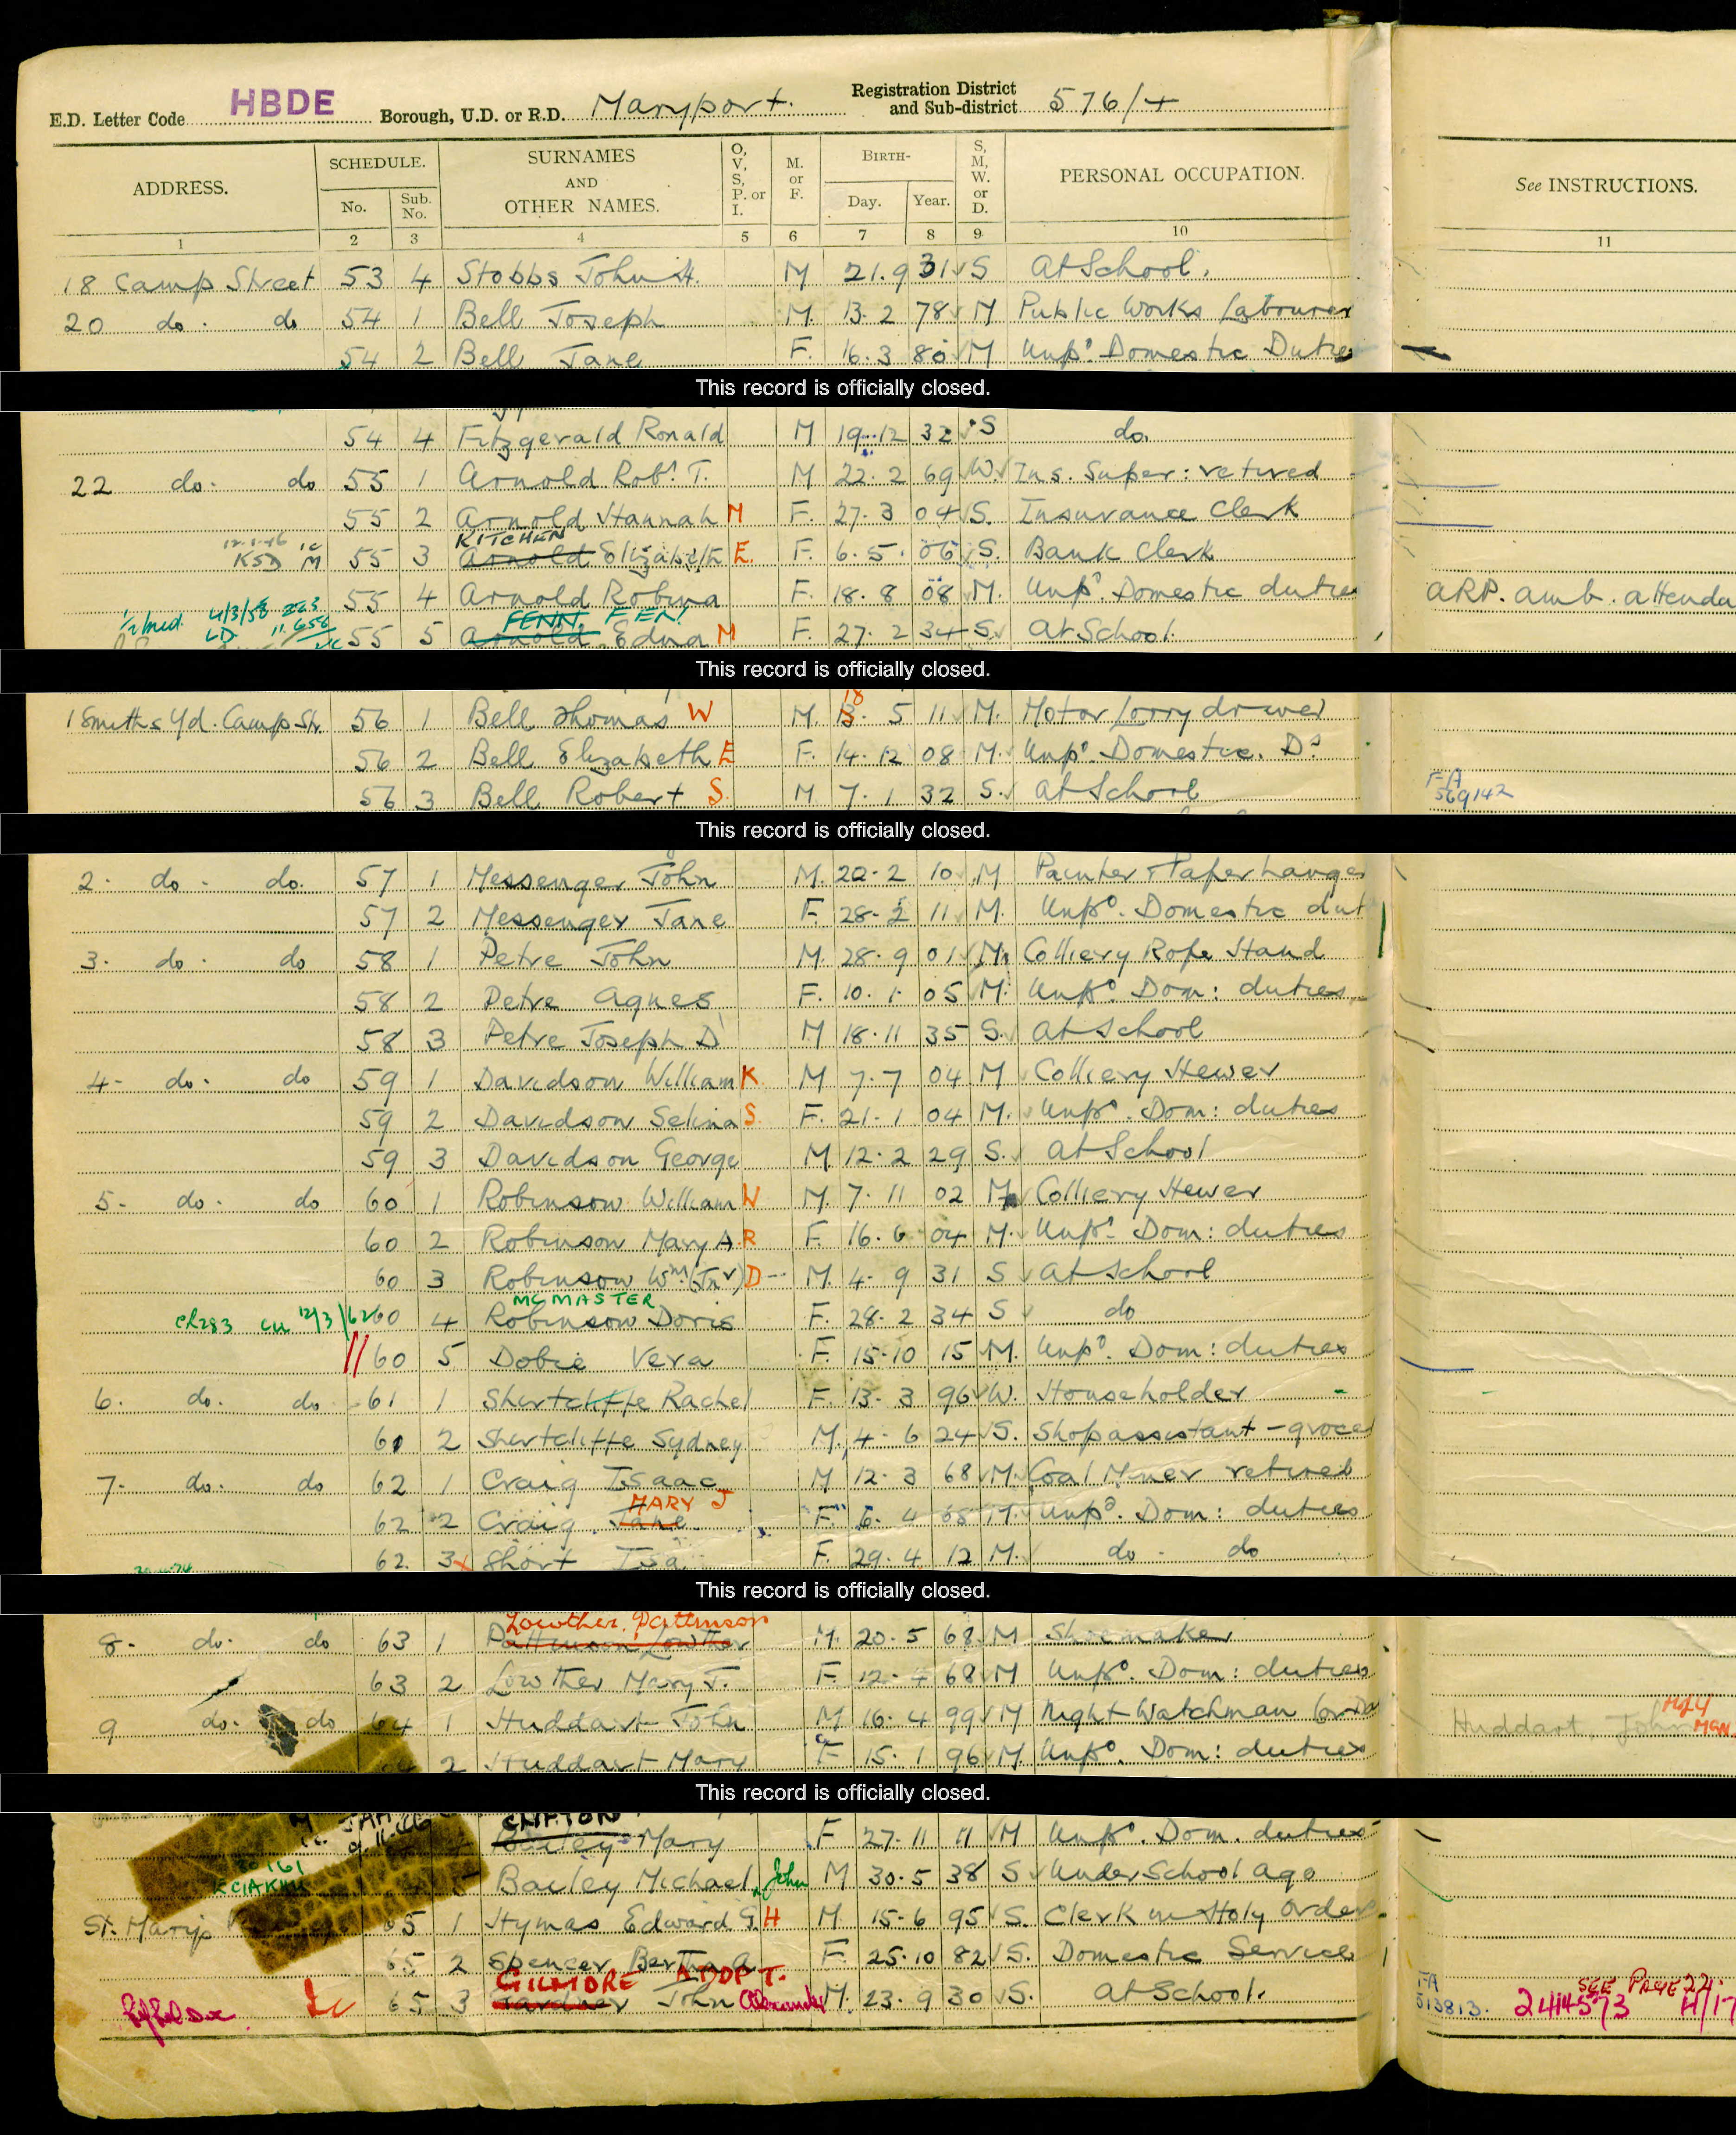 E.D. Letter Code HBDE Borough, U.D. or R.D. Maryport. Registration District and Sub-district 576/4
ADDRESS. SCHEDULE. No. Sub. No. SURNAMES AND OTHER NAMES. O, V, S, P. or I. M. or F. BIRTH- Day. Year. S, M, W. or D. PERSONAL OCCUPATION. See INSTRUCTIONS.
1 2 3 4 5 6 7 8 9 10 11
18 Camp Street 53 4 Stobbs John H. M 21.9 31 S At School.
20 do. do 54 1 Bell Joseph M. 13.2 78 M Public Works Labourer
54 2 Bell Jane F. 16.3 80 M Unpd Domestic Duties
This record is officially closed.
54 4 Fitzgerald Ronald M 19.12 32 S do.
22 do. do 55 1 Arnold Robt. T. M 22.2 69 W. Ins. Super: retired
55 2 Arnold Hannah M F. 27.3 04 S. Insurance Clerk
KITCHEN
12.1.46 KSD M 55 3 Arnold Elizabeth E. F. 6.5. 06 S. Bank Clerk
55 4 Arnold Robina F. 18.8 08 M. Unpd Domestic duties ARP. amb. attenda
4/3/58 FENN. FEN.
55 5 Arnold Edna M F. 27.2 34 S. At School.
This record is officially closed.
18
1 Smiths Yd. Camp Str. 56 1 Bell Thomas W M. 13. 5 11 M. Motor lorry driver
56 2 Bell Elizabeth E F. 14.12 08 M. Unpd Domestic. Ds
56 3 Bell Robert S. M 7.1 32 S. At School FA 569142
This record is officially closed.
2. do. do. 57 1 Messenger John M. 22.2 10 M Painter & Paperhanger
57 2 Messenger Jane F. 28.2 11 M. Unpd. Domestic dut
3. do. do 58 1 Petre John M. 28.9 01 M Colliery Rope Hand
58 2 Petre Agnes F. 10.1. 05 M. Unpd Dom: duties
58 3 Petre Joseph D M 18.11 35 S. At School
4- do. do 59 1 Davidson William K M 7.7 04 M Colliery Hewer
59 2 Davidson Selina S. F. 21.1 04 M. Unpd. Dom: duties
59 3 Davidson George M. 12.2 29 S. At School
5- do. do 60 1 Robinson William W M. 7.11 02 M Colliery Hewer
60 2 Robinson Mary A. R F. 16.6 04 M. Unpd. Dom: duties
60 3 Robinson Wm (Jnr) D-- M. 4.9 31 S At School
MCMASTER
CR283 CU 12/3/62 60 4 Robinson Doris F. 28.2 34 S do
60 5 Dobie Vera F. 15.10 15 M. Unpd. Dom: duties
6. do. do 61 1 Shertcliffe Rachel F. 13.3 96 W. Householder
61 2 Shertcliffe Sydney M. 4.6 24 S. Shop assistant - groce
7- do. do 62 1 Craig Isaac M 12.3 68 M. Coal Miner retired
MARY J
62 2 Craig Jane F. 6.4 68 M. Unpd. Dom: duties
62. 3 Short Isa F. 29.4 12 M. do - do
This record is officially closed.
Lowther. Pattinson
8- do. do 63 1 Pattinson Lowther M. 20.5 68 M Shoemaker
63 2 Lowther Mary J. F 12.4 68 M Unpd. Dom: duties
9 do. do 64 1 Huddart John M 16.4 99 M Night Watchman Huddart John
2 Huddart Mary F 15.1 96 M. Unpd. Dom: duties
This record is officially closed.
CLIFTON
Bailey Mary F 27.11 11 M Unpd. Dom. duties
Bailey Michael John M 30.5 38 S Under School age
St. Marys 65 1 Hymas Edward G. H M. 15.6 95 S. Clerk in Holy Orders
65 2 Spencer Bertha A F. 25.10 82 S. Domestic Service
GILMORE ADOPT. SEE PAGE 22.
65 3 Gardner John Alexander M. 23.9 30 S. At School. FA 513813. 2414573 H/17